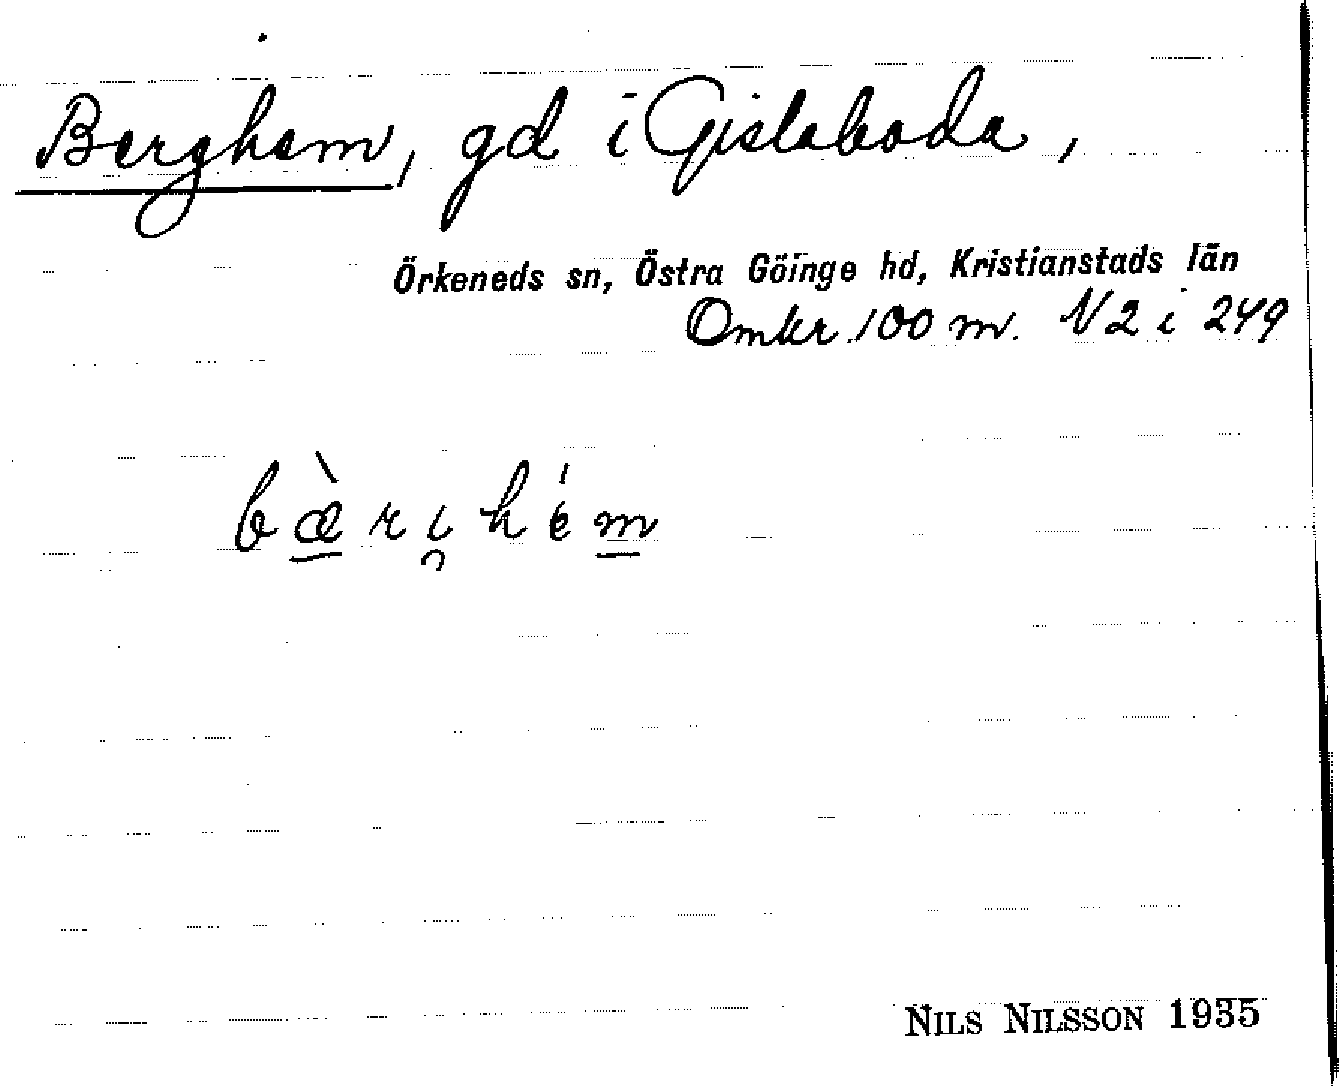 Berghem, gd i Gislaboda,
Örkeneds sn, Östra Göinge hd, Kristianstads län
Omkr. 100 m. N2 i 249
bæ̀ri̯hém
NILS NILSSON 1935